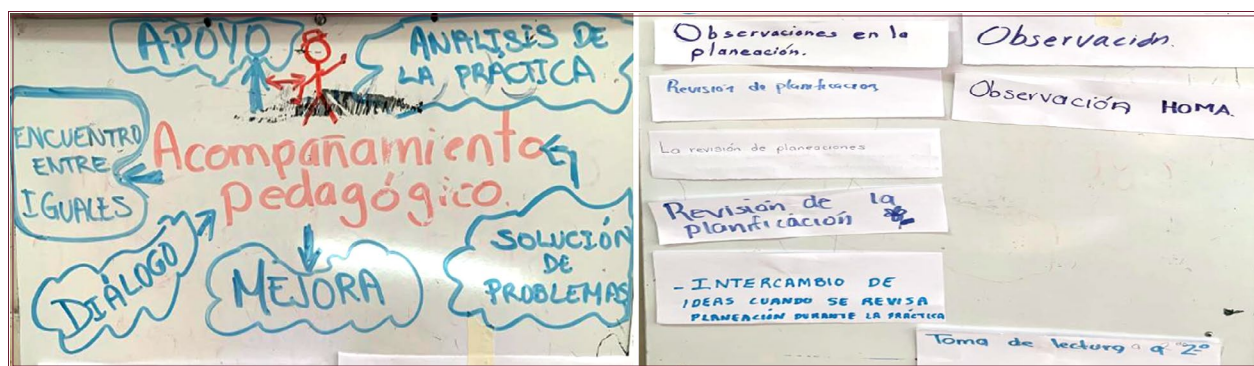 APOYO
ANALISIS DE
LA PRÁCTICA
ENCUENTRO
ENTRE
IGUALES
Acompañamiento
pedagógico.
DIÁLOGO
MEJORA
SOLUCIÓN
DE
PROBLEMAS
Observaciones en la
planeación.
Revisión de planificación
La revisión de planeaciones
Revisión de la
planificación
- INTERCAMBIO DE
IDEAS CUANDO SE REVISA
PLANEACIÓN DURANTE LA PRÁCTICA
Observación.
Observación HOMA.
Toma de lectura a 2º